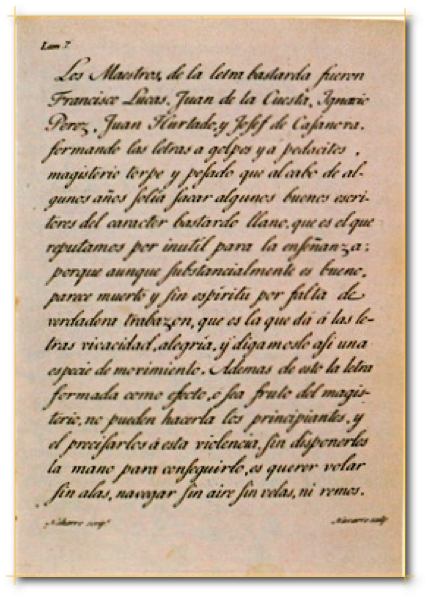 Lam 7.
Los Maestros, de la letra bastarda fueron
Francisco Lucas, Juan de la Cuesta, Ignacio
Perez, Juan Hurtado, y Josef de Casanova.
formando las letras a golpes y a pedacitos,
magisterio torpe y pesado que al cabo de al-
gunos años solia sacar algunos buenos escri-
tores del caracter bastardo llano, que es el que
reputamos por inutil para la enseñanza:
porque aunque substancialmente es bueno,
parece muerto y sin espiritu por falta de
verdadera trabazon, que es la que dá á las le-
tras vivacidad, alegria, y digamoslo asi una
especie de movimiento. Ademas de esto la letra
formada como efecto, o sea fruto del magis-
terio, no pueden hacerla los principiantes, y
el precisarlos á esta violencia, sin disponerles
la mano para conseguirlo, es querer volar
sin alas, navegar sin aire sin velas, ni remos.
Navarro sculp.